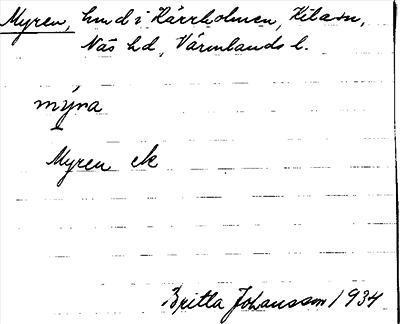 Myren, hmd i Härrholmen, Kila sn,
Näs hd, Värmlands l.
mýra
Myren ek
Britta Johansson 1934